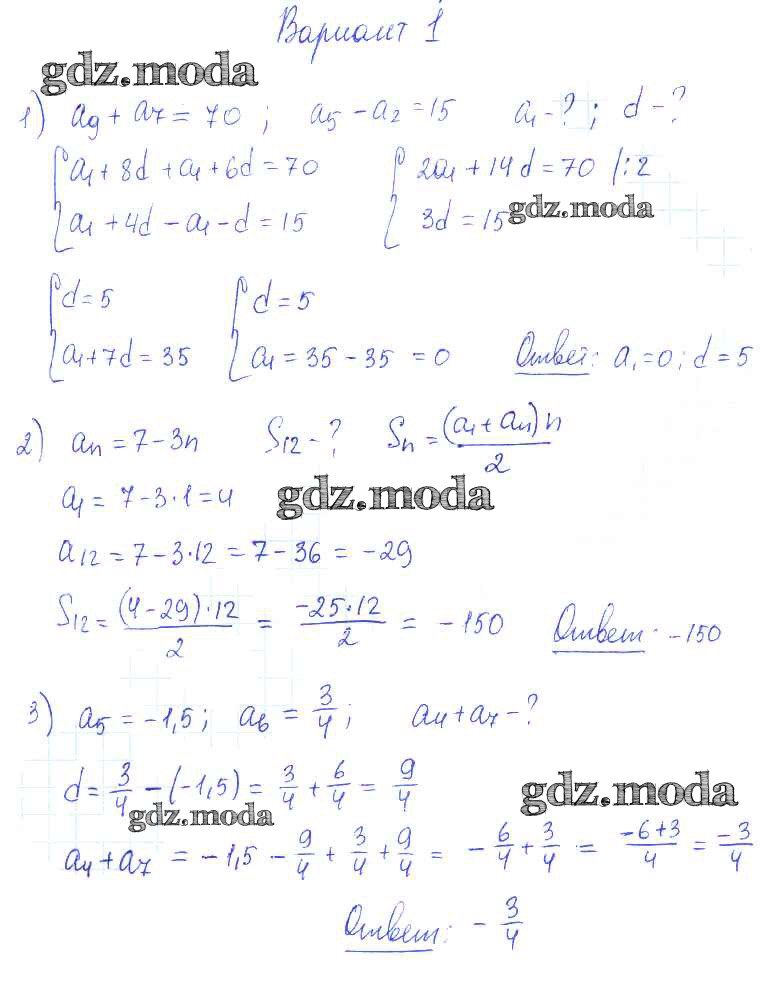 Вариант 1
gdz.moda
1) a₉ + a₇ = 70 ; a₅ − a₂ = 15 a₁ − ? ; d − ?
{ a₁ + 8d + a₁ + 6d = 70 { 2a₁ + 14d = 70 |:2
a₁ + 4d − a₁ − d = 15 3d = 15 gdz.moda
{ d = 5 { d = 5
a₁ + 7d = 35 a₁ = 35 − 35 = 0 Ответ: a₁ = 0; d = 5
2) aₙ = 7 − 3n S₁₂ − ? Sₙ = (a₁ + aₙ) n / 2
a₁ = 7 − 3·1 = 4 gdz.moda
a₁₂ = 7 − 3·12 = 7 − 36 = −29
S₁₂ = (4 − 29)·12 / 2 = −25·12 / 2 = −150 Ответ: −150
3) a₅ = −1,5 ; a₆ = 3/4 ; a₄ + a₇ − ?
d = 3/4 − (−1,5) = 3/4 + 6/4 = 9/4 gdz.moda
gdz.moda
a₄ + a₇ = −1,5 − 9/4 + 3/4 + 9/4 = −6/4 + 3/4 = −6+3/4 = −3/4
Ответ: −3/4